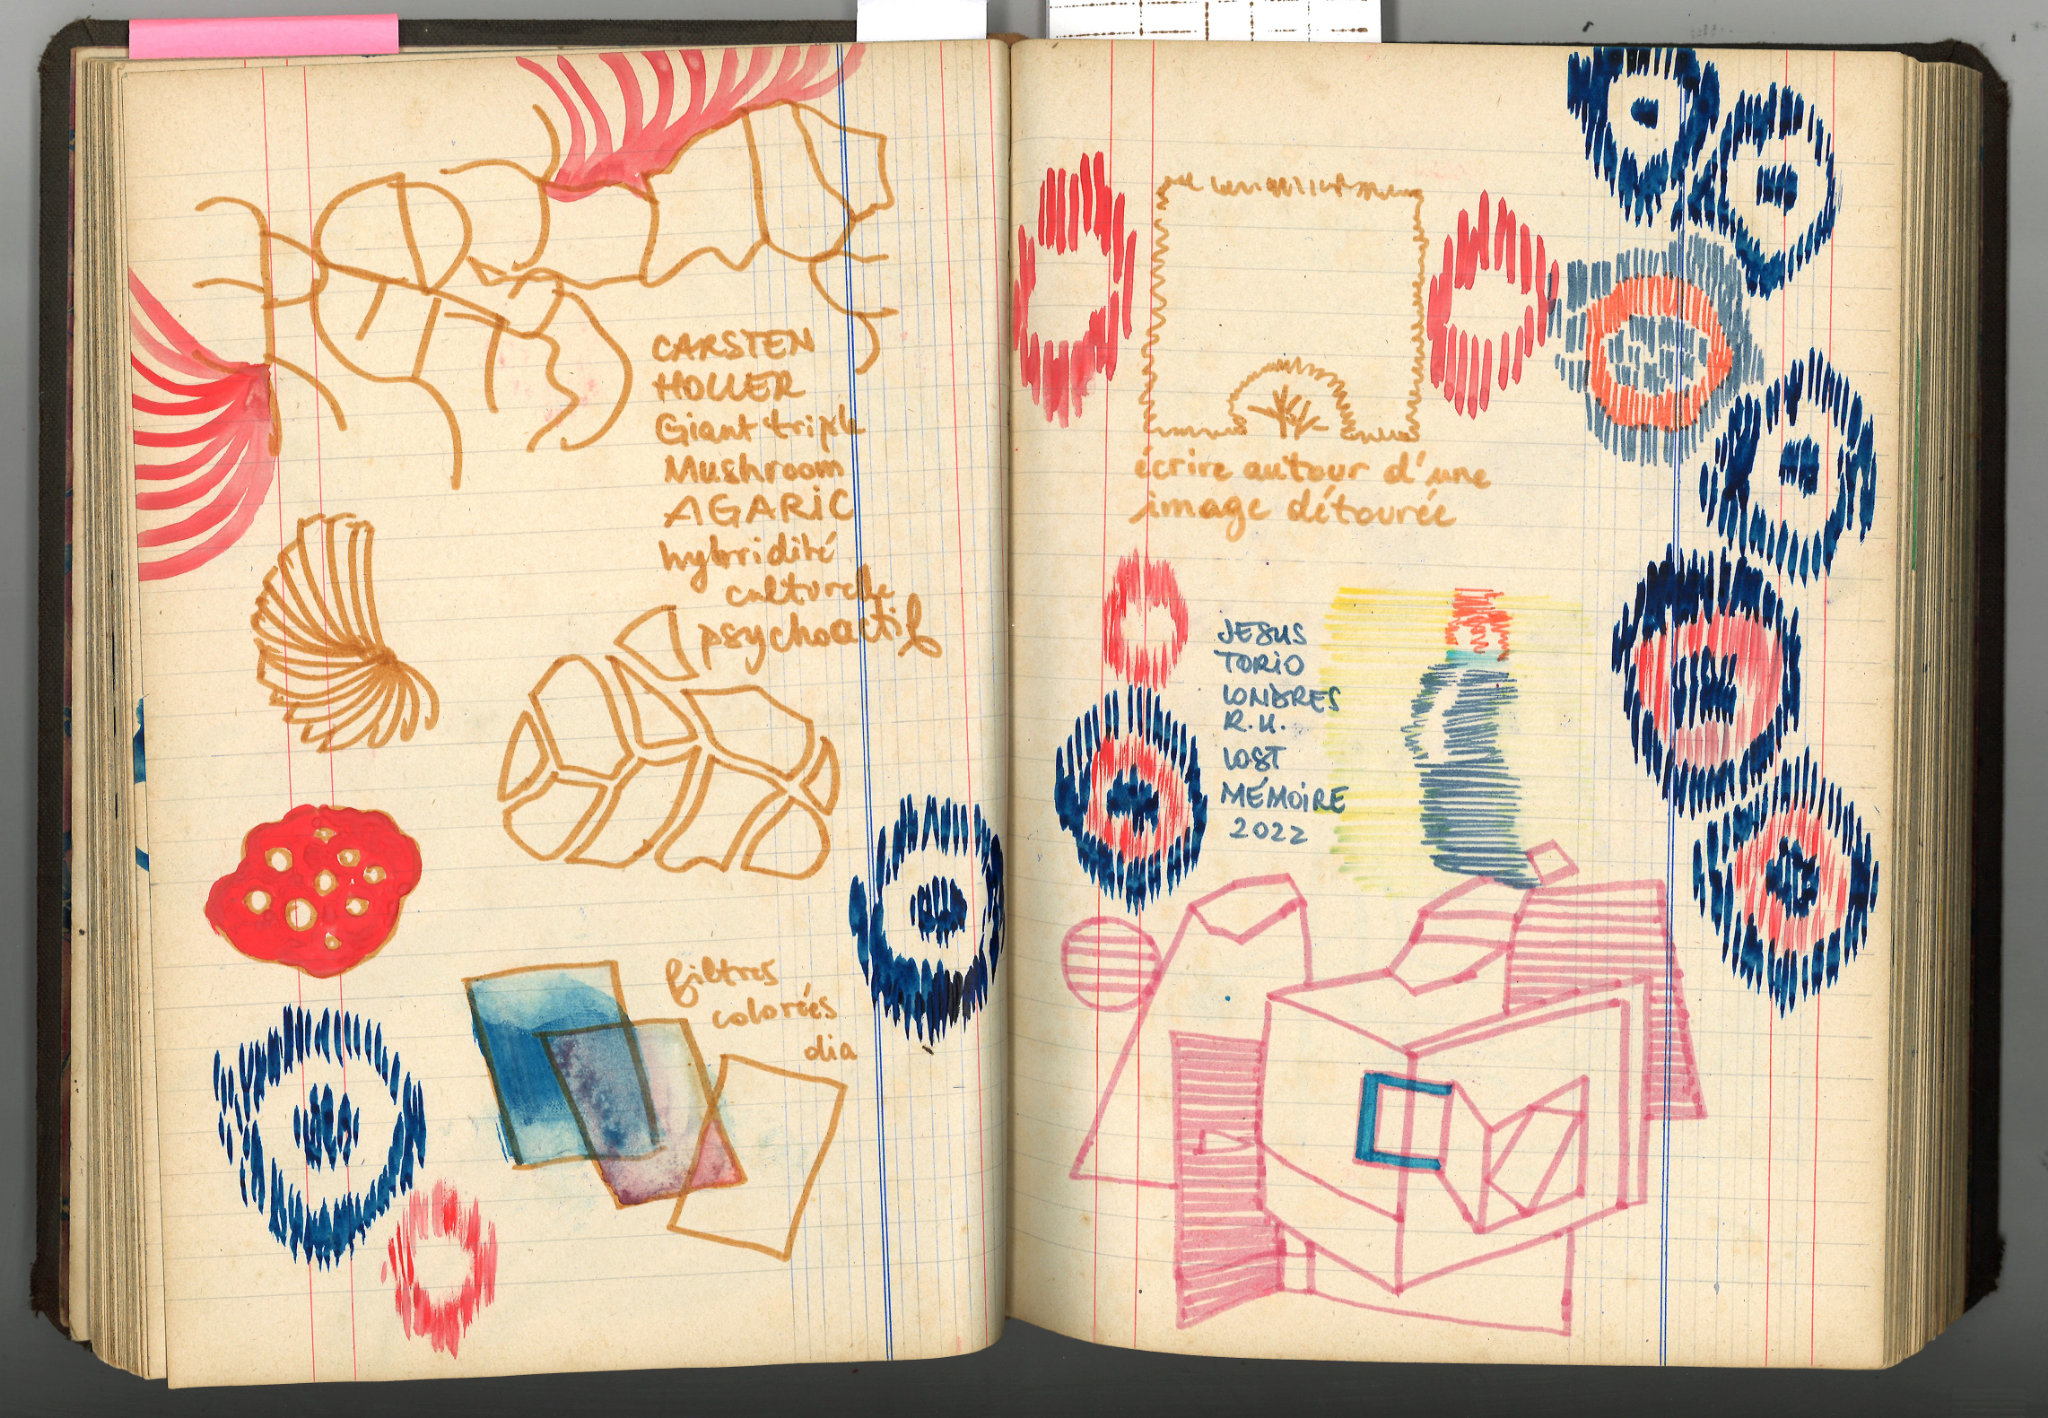 CARSTEN
HOLLER
Giant triple
Mushroom
AGARIC
hybridité
culturelle
psychoactif
filtres
colorés
dia
écrire autour d'une
image détourée
JESUS
TORIO
LONDRES
R.U.
LOST
MÉMOIRE
2022